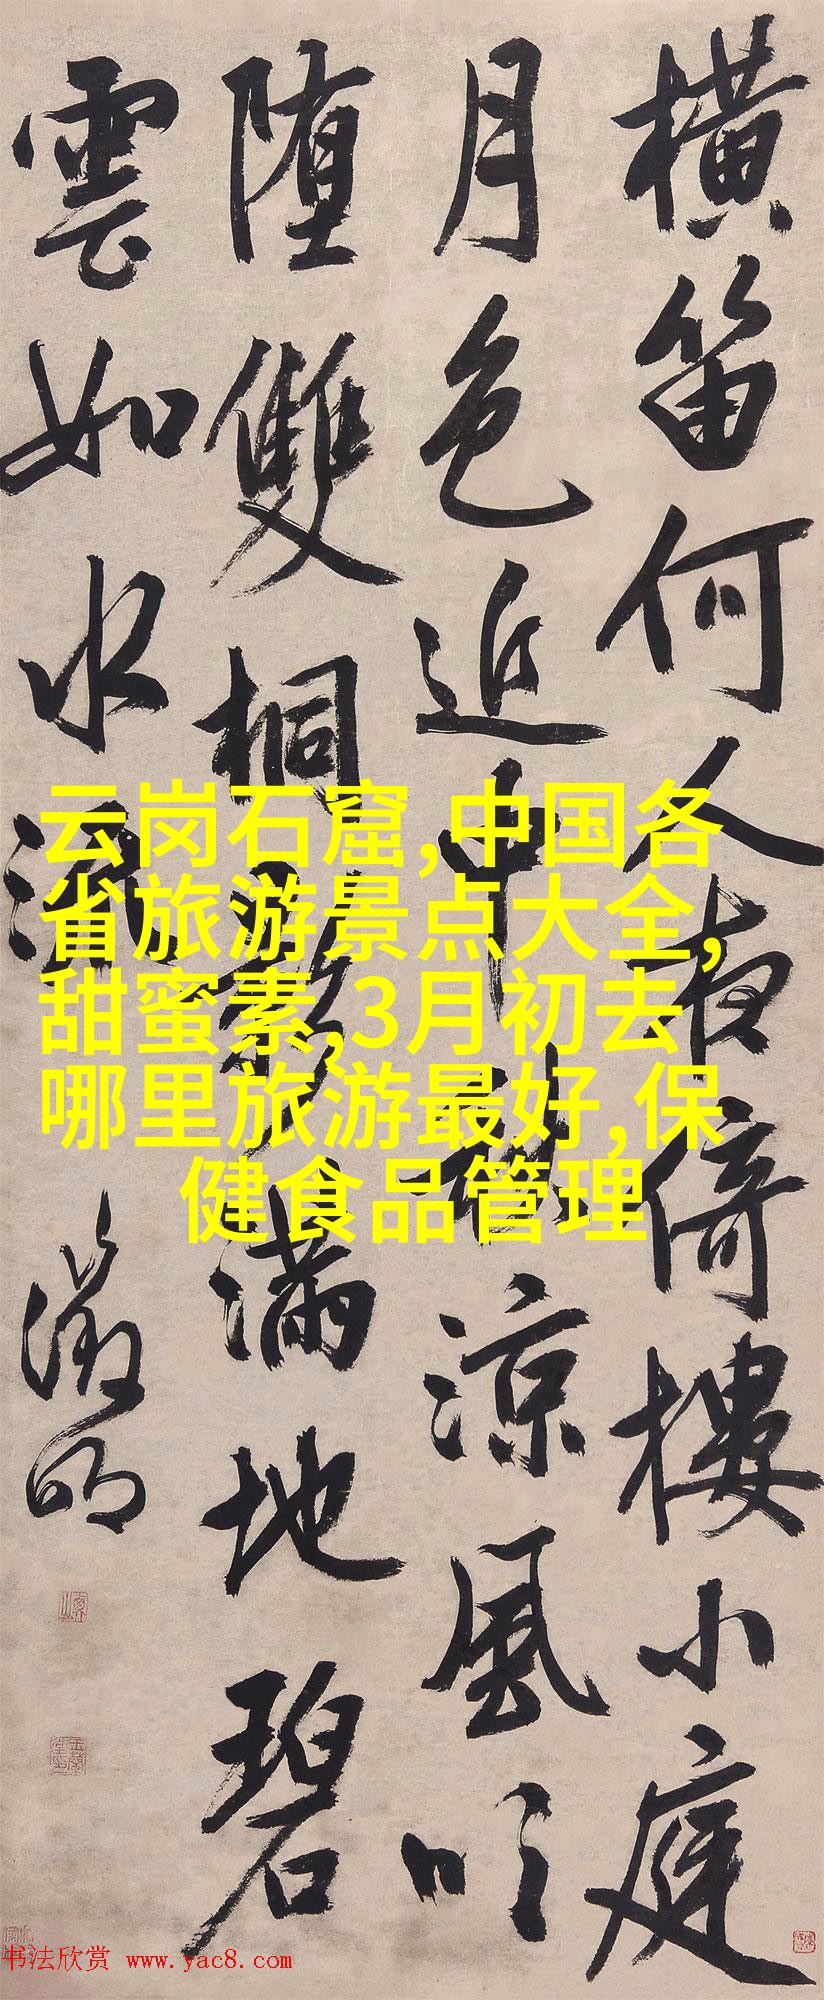 橫笛何人夜倚樓小庭
月色近中秋涼風吹
堕雙桐影滿地碧
雲如水流
徵明
云岗石窟,中国各
省旅游景点大全,
甜蜜素,3月初去
哪里旅游最好,保
健食品管理
书法欣赏 www.yac8.com